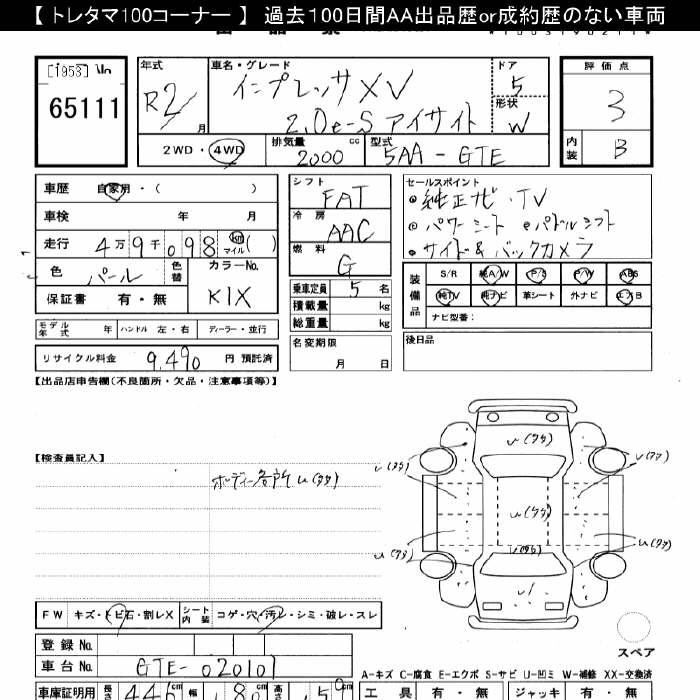 【 トレタマ100コーナー 】 過去100日間AA出品歴or成約歴のない車両
[1953] No
65111
年式
R2/
月
車名・グレード
インプレッサXV
2.0e-S アイサイト
ドア
5
形状
W
評価点
3
内装
B
2WD・4WD
排気量
2000
cc
型式
5AA-GTE
車歴 自家用・( )
車検 年 月
走行 4万9千098 km マイル ( )
色 パール 色替
カラーNo.
K1X
保証書 有・無
モデル年式 年 ハンドル 左・右 ディーラー・並行
リサイクル料金 9,490 円 預託済
シフト
FAT
冷房
AAC
燃料
G
乗車定員 5 名
積載量 kg
総重量 kg
名変期限
月 日
セールスポイント
◎純正ナビ・TV
◎パワーシート ◎パドルシフト
◎サイド&バックカメラ
装備品
S/R 純A/W P/S P/W ABS
純TV 純ナビ 革シート 外ナビ エアB
ナビ型番:
後日品
【出品店申告欄(不良箇所・欠品・注意事項等)】
【検査員記入】
ボディー各所 u(タタ)
FW キズ・トビ石・割レX シート内装 コゲ・穴・汚レ・シミ・破レ・スレ
登録 No.
車台 No. GTE-020101
車庫証明用 長さ 446 cm 幅 180 cm 高さ
スペア
A-キズ C-腐食 E-エクボ S-サビ U-凹ミ W-補修 XX-交換済
工具 有・無 ジャッキ 有・無